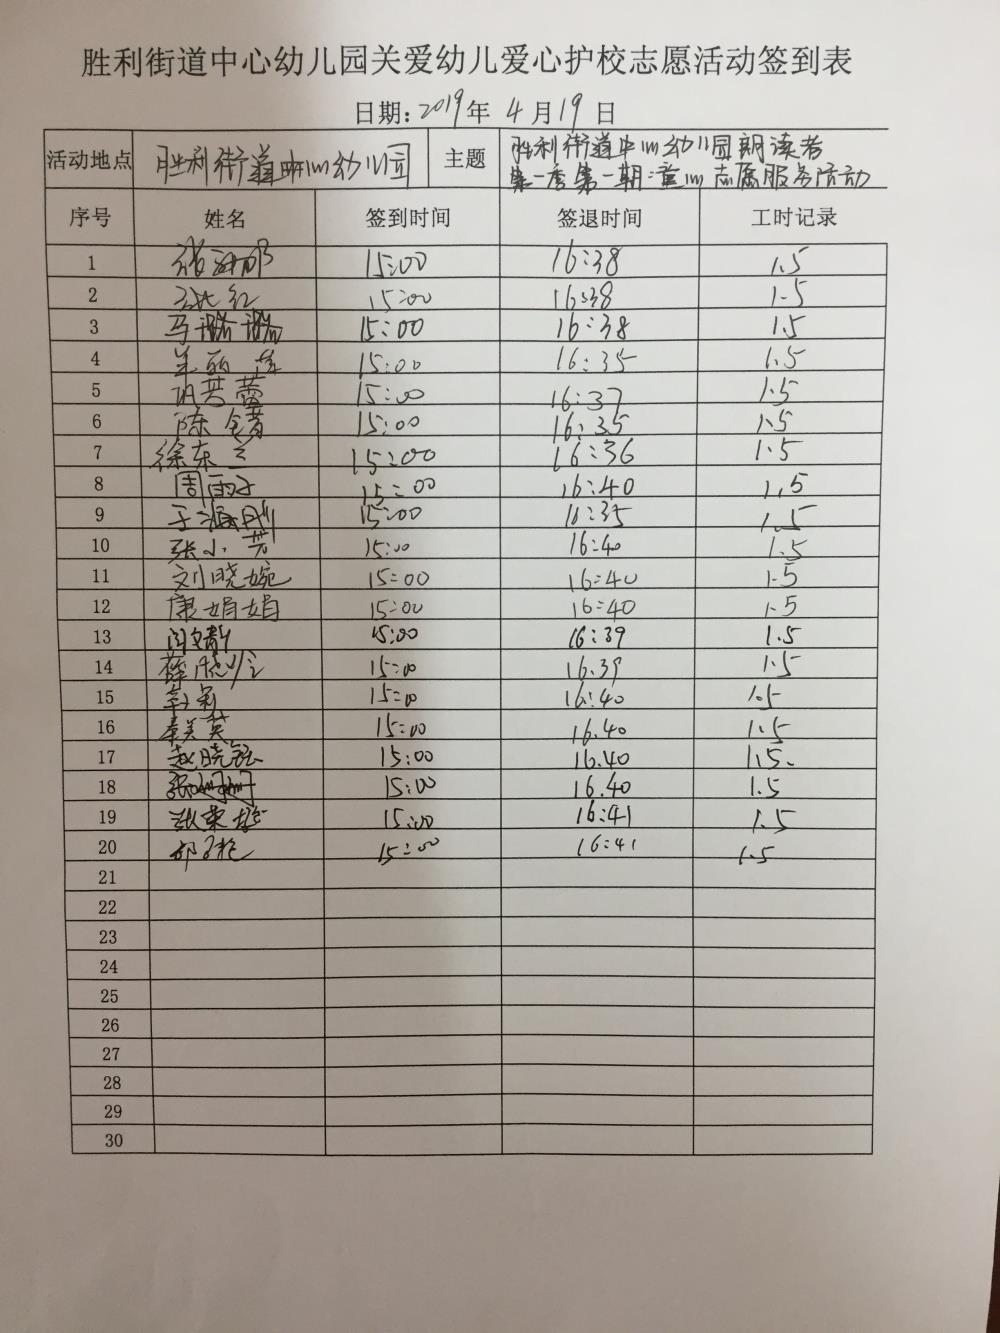 胜利街道中心幼儿园关爱幼儿爱心护校志愿活动签到表
日期: 2019年 4月19日
活动地点 胜利街道中心幼儿园 主题 胜利街道中心幼儿园朗读者
第一季第一期:童心志愿服务活动
序号 姓名 签到时间 签退时间 工时记录
1 张 15:00 16:38 1.5
2 红 15:00 16:38 1.5
3 马潞潞 15:00 16:38 1.5
4 丽萍 15:00 16:35 1.5
5 巩芸蕾 15:00 16:37 1.5
6 陈 15:00 16:35 1.5
7 徐东兰 15:00 16:36 1.5
8 周雨子 15:00 16:40 1.5
9 15:00 16:35 1.5
10 张小芳 15:00 16:40 1.5
11 刘晓婉 15:00 16:40 1.5
12 康娟娟 15:00 16:40 1.5
13 闫文静 15:00 16:39 1.5
14 薛 15:00 16.39 1.5
15 莉 15:00 16:40 1.5
16 秦美英 15:00 16.40 1.5
17 赵晓钰 15:00 16.40 1.5.
18 张姗姗 15:00 16.40 1.5
19 15:00 16:41 1.5
20 15:00 16:41 1.5
21
22
23
24
25
26
27
28
29
30